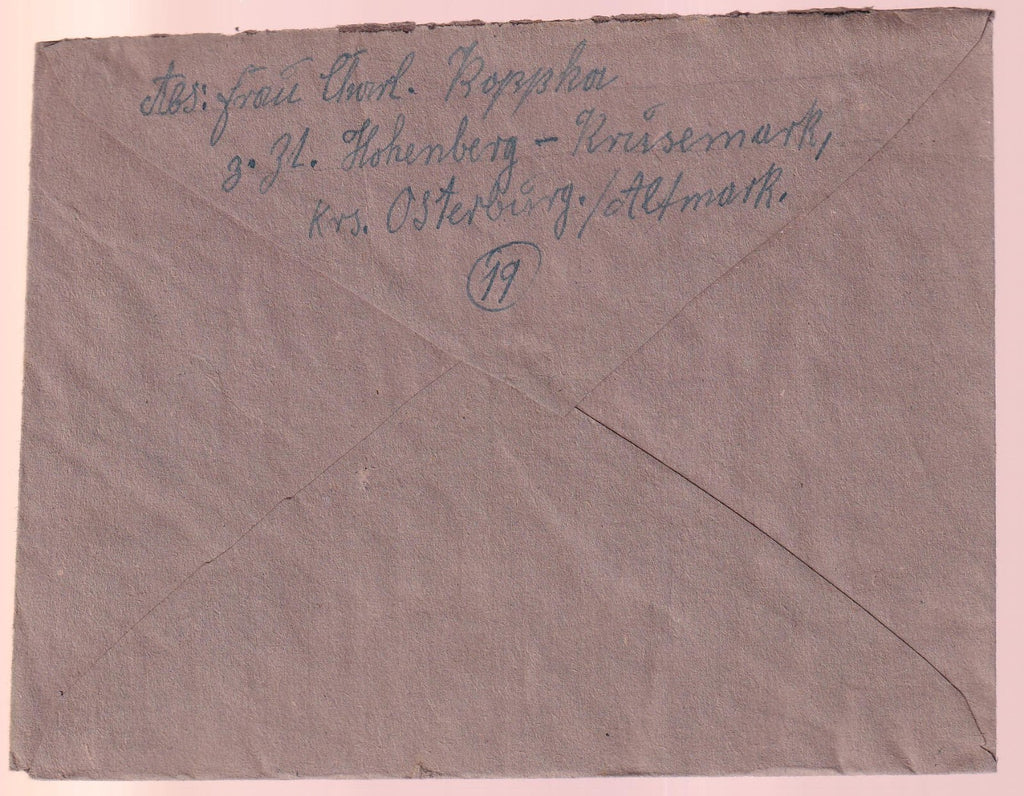 Abs: Frau Charl. Koppka
z. Zt. Hohenberg - Krusemark,
Krs. Osterburg./Altmark.
19